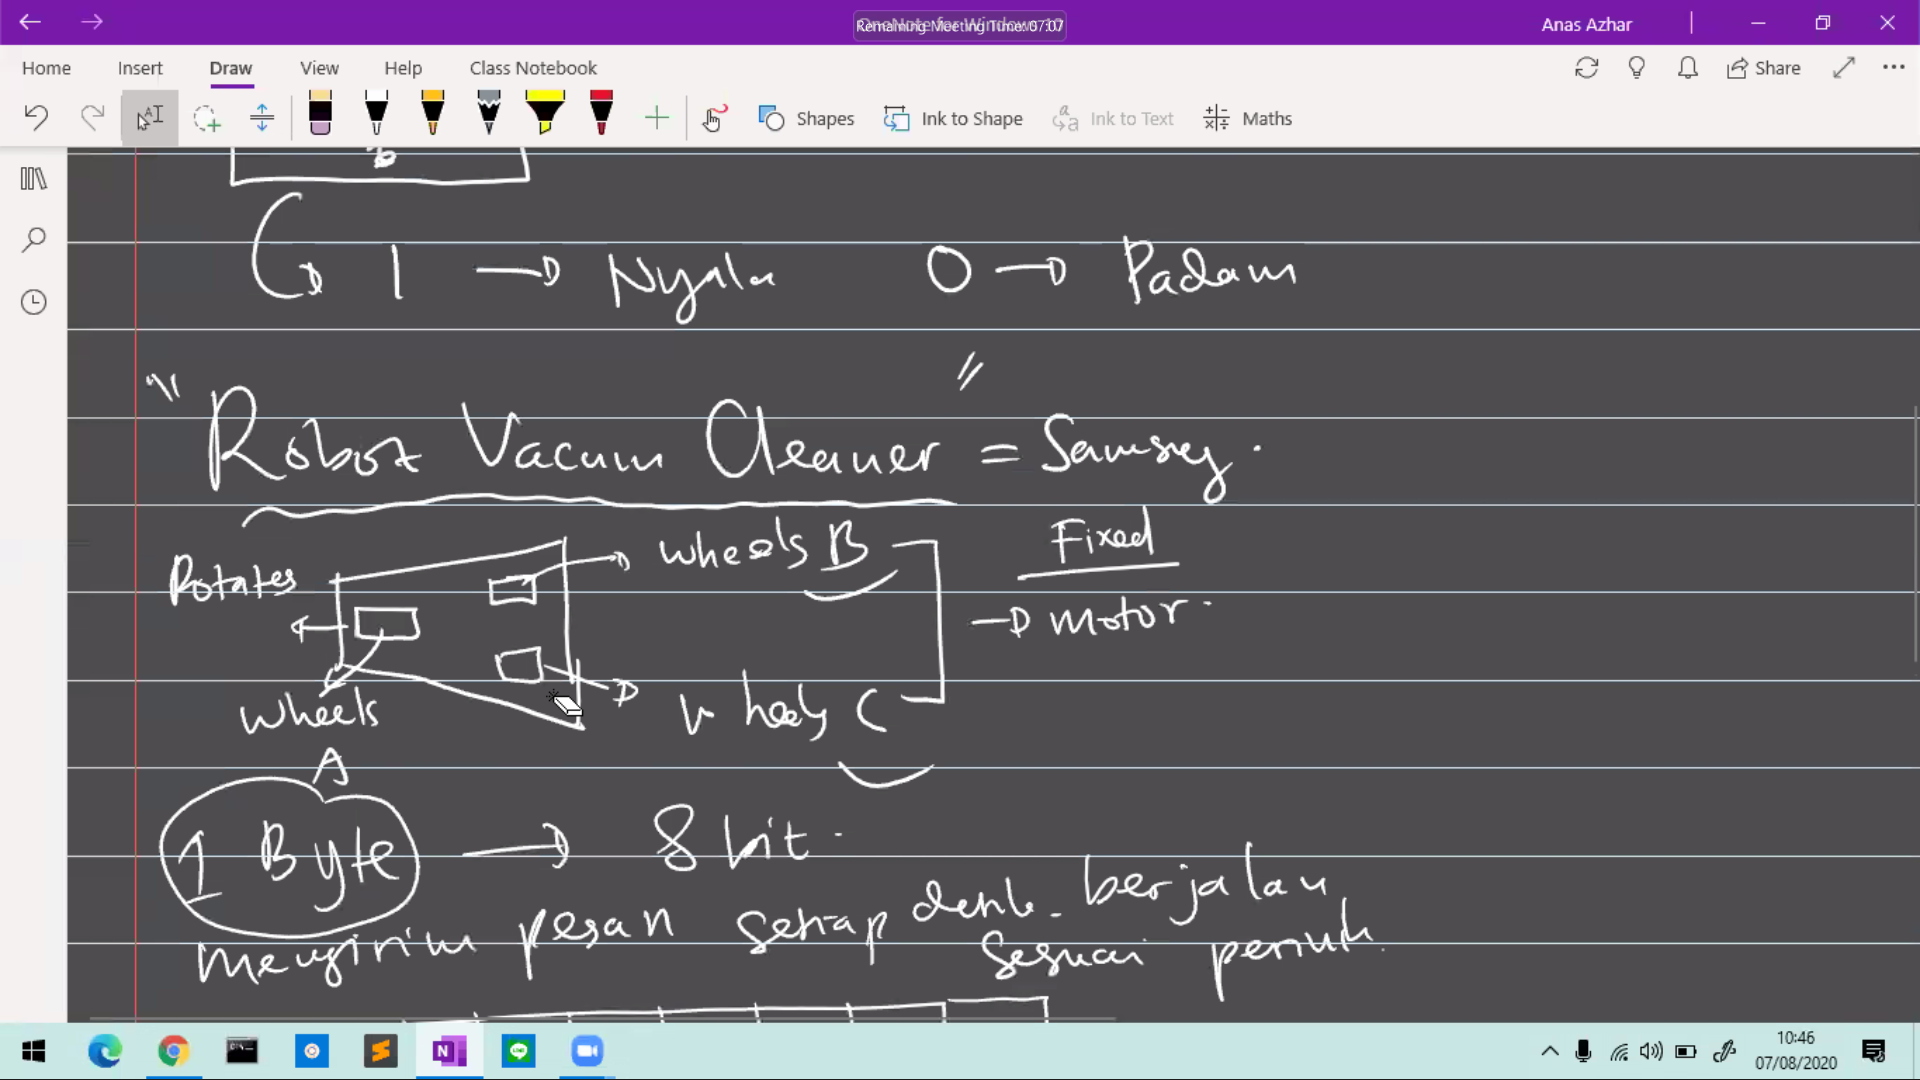 OneNote for Windows 10
Remaining Meeting Time: 07:07
Anas Azhar
Home Insert Draw View Help Class Notebook
Share
Shapes Ink to Shape Ink to Text Maths
b
1 → Nyala 0 → Padam
"Robot Vacum Cleaner" = Samsung.
Rotates
wheels B
Fixed
→ motor.
wheels
A
wheels C
1 Byte → 8 bit.
mengirim pesan setiap detik. berjalan
sesuai perintah.
10:46
07/08/2020